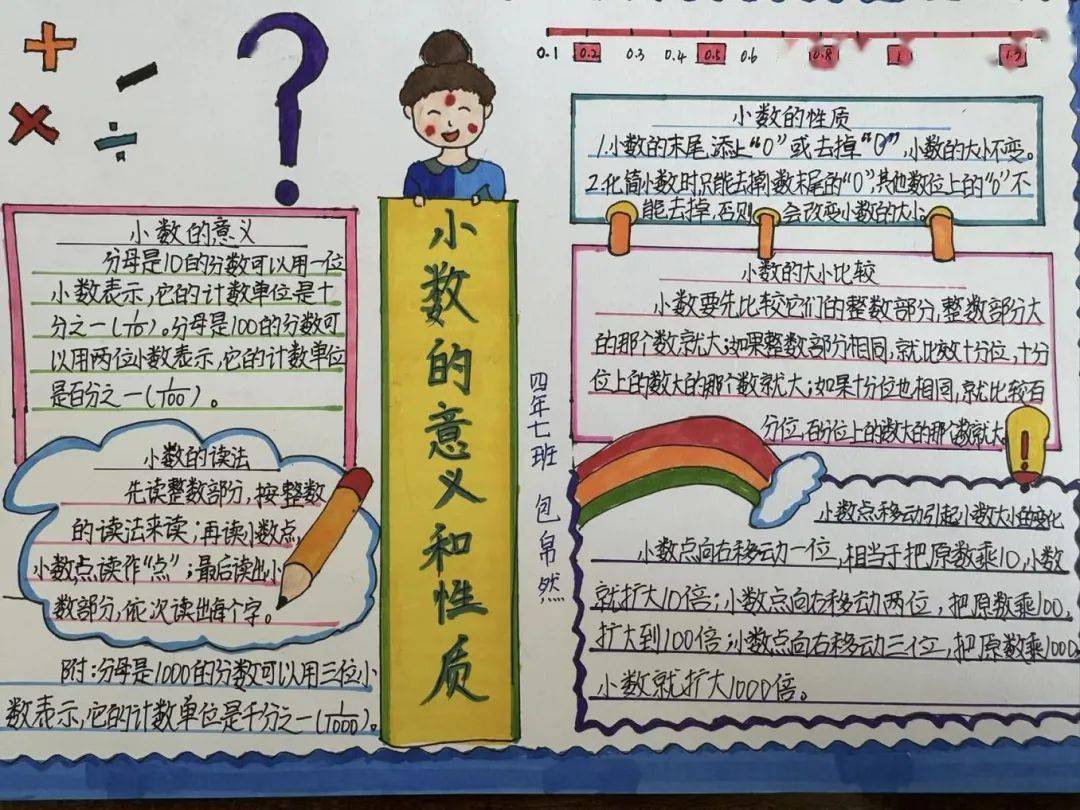 小数的意义
分母是10的分数可以用一位
小数表示,它的计数单位是十
分之一(1/10)。分母是100的分数可
以用两位小数表示,它的计数单位
是百分之一(1/100)。
小数的读法
先读整数部分,按整数
的读法来读;再读小数点,
小数点读作“点”;最后读出小
数部分,依次读出每个字。
附:分母是1000的分数可以用三位小
数表示,它的计数单位是千分之一(1/1000)。
小数的意义和性质
四年七班 包帛然
0.1 0.2 0.3 0.4 0.5 0.6 0.8 1
小数的性质
1.小数的末尾添上“0”或去掉“0”,小数的大小不变。
2.化简小数时只能去掉小数末尾的“0”,其他数位上的“0”不
能去掉,否则会改变小数的大小。
小数的大小比较
小数要先比较它们的整数部分,整数部分大
的那个数就大;如果整数部分相同,就比较十分位,十分
位上的数大的那个数就大;如果十分位也相同,就比较百
分位,百分位上的数大的那个数就大
小数点移动引起小数大小的变化
小数点向右移动一位,相当于把原数乘10,小数
就扩大10倍;小数点向右移动两位,把原数乘100,
扩大到100倍;小数点向右移动三位,把原数乘1000
小数就扩大1000倍。